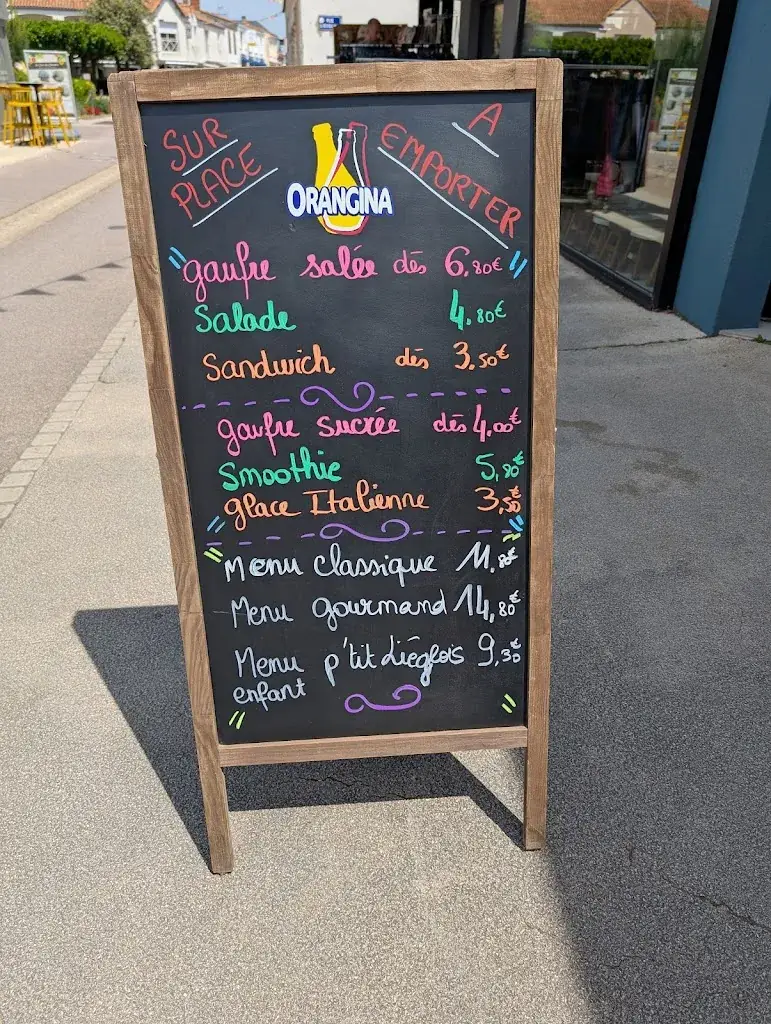 SUR PLACE
A EMPORTER
ORANGINA
gaufre salée dès 6,80€
Salade 4.80€
Sandwich dès 3.50€
gaufre sucrée dès 4,00€
Smoothie 5,80€
glace Italienne 3,50€
Menu classique 11.80€
Menu gourmand 14,80€
Menu enfant p'tit Liégeois 9,30€